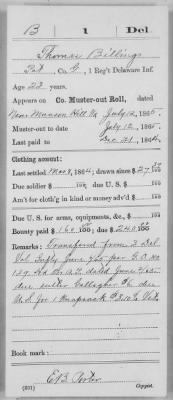 B | 1 | Del.
Thomas Billings
Pvt., Co. G, 1 Reg't Delaware Inf.
Age 22 years.
Appears on Co. Muster-out Roll, dated
Near Munson Hill Va July 12, 1865.
Muster-out to date July 12, 1865.
Last paid to Dec 31, 1864.
Clothing account:
Last settled 1864; drawn since $27
Due soldier $ 100; due U. S. $ 100
Am't for cloth'g in kind or money adv'd $ 100
Due U. S. for arms, equipments, &c., $ 100
Bounty paid $160 100; due $240 100
Remarks: Transferred from 3 Del
Vol Infty June 7 65 per G. O. No
129. Hd. Qr. A. P. dated June 65
due sutler Gallagher
U. S. for 1 Knapsack
Book mark:
E B Porter
(361) Copyist.